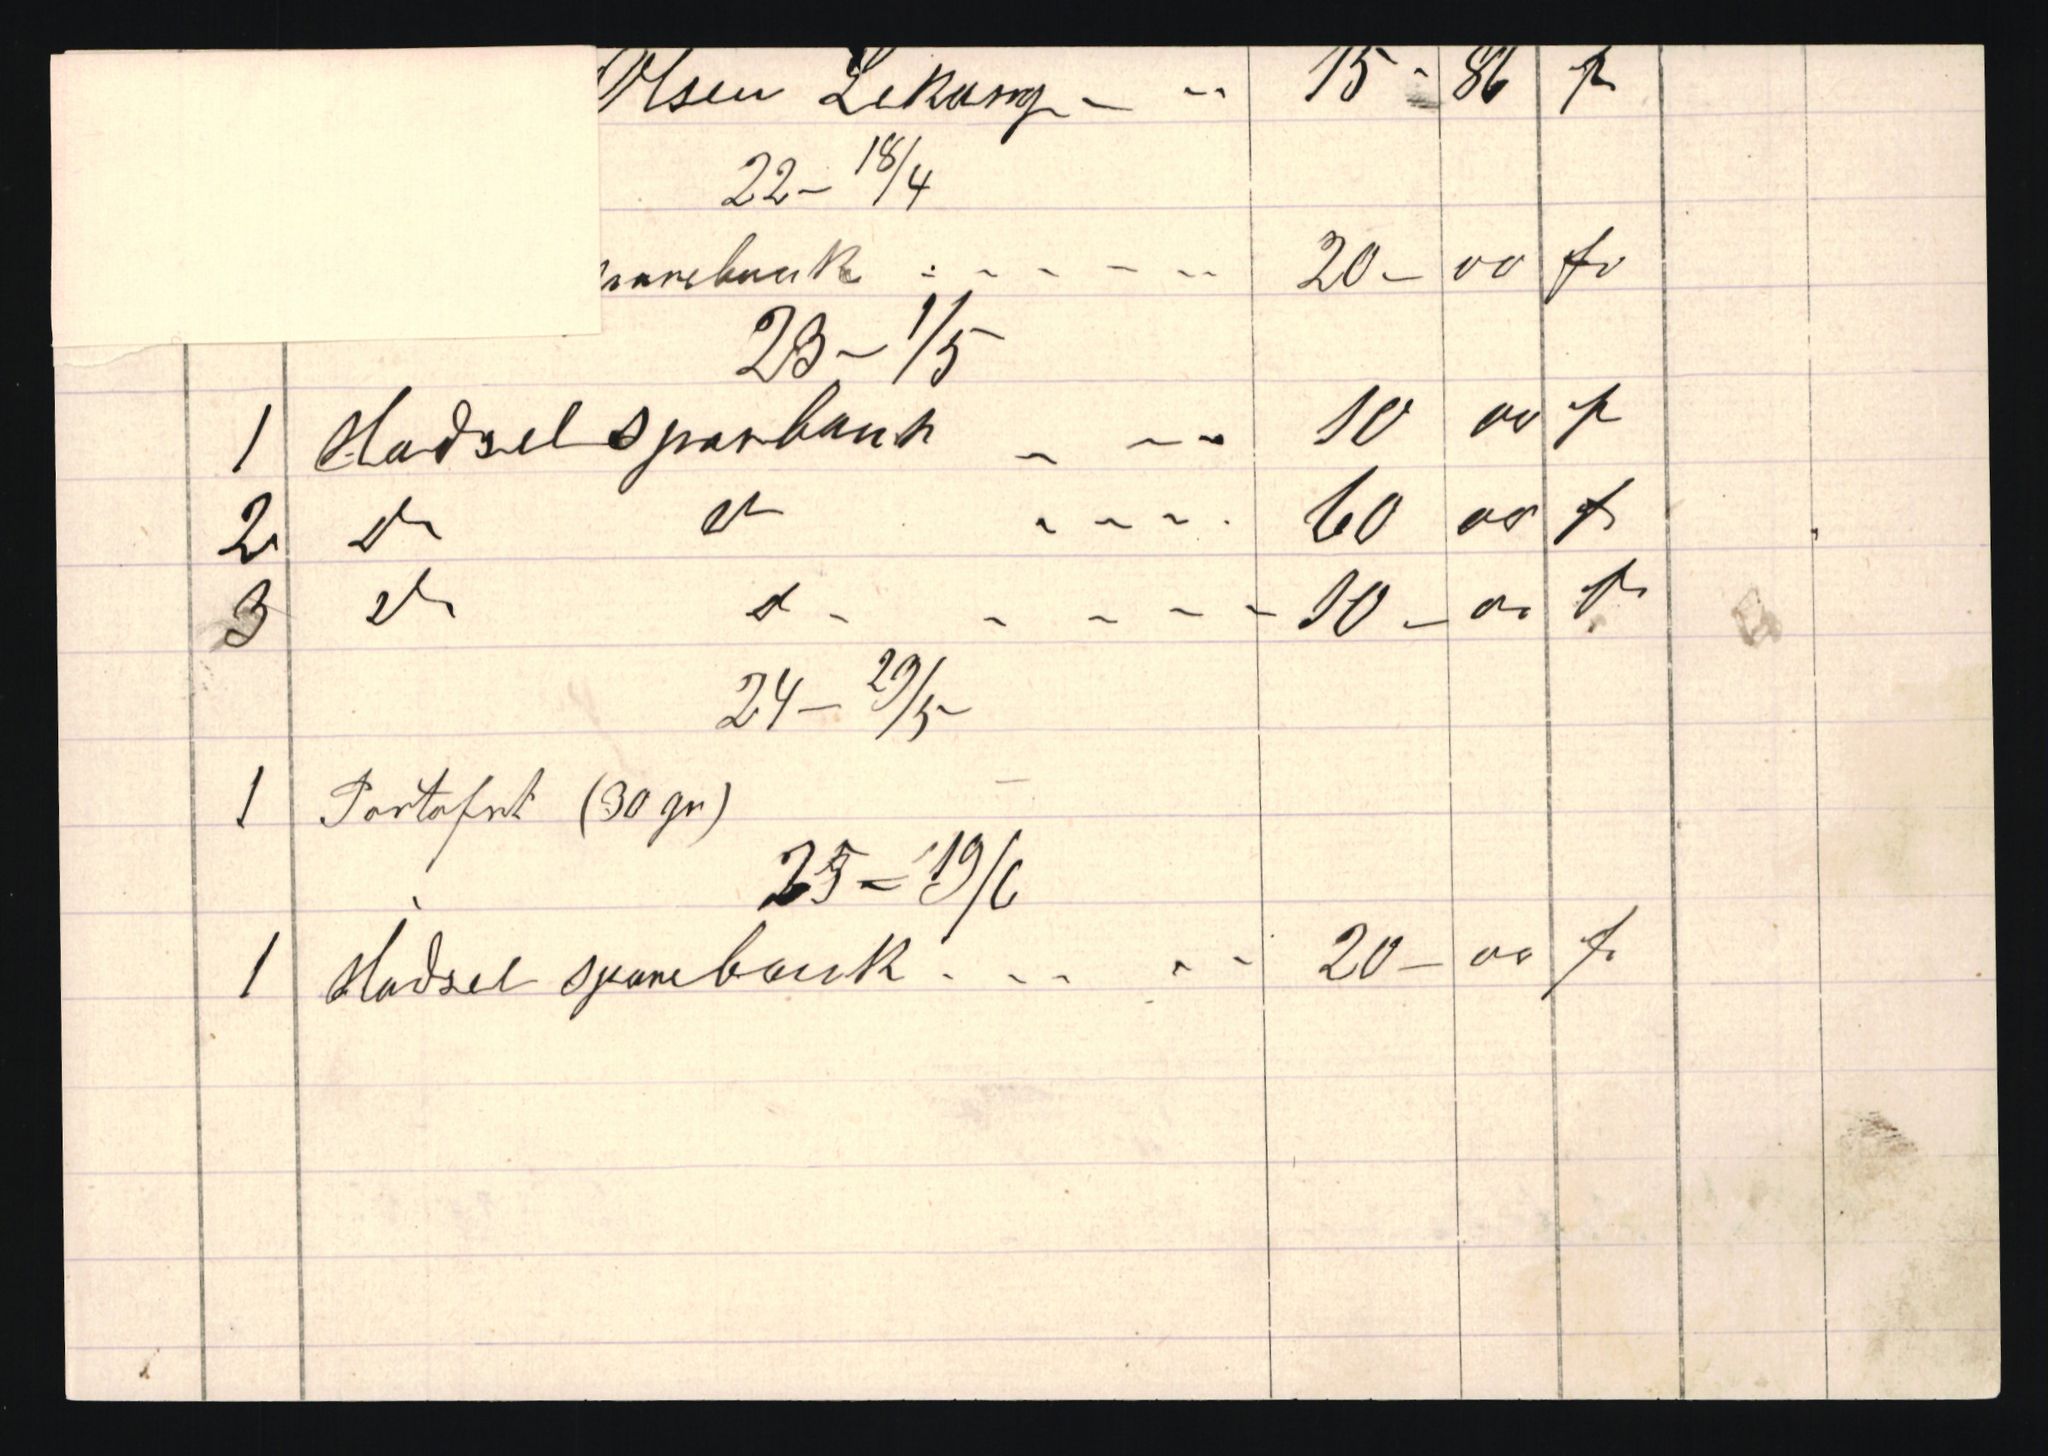 Olsen Lekang - -- 15 - 86 fr
22 - 18/4
sparebank - - - - -- 20 - 00 fr
23 - 1/5
1 Hadsel sparbank - - -- 10 00 fr
2 do do - - - 60 00 fr
3 do do - - - - - 10 - 00 fr
24 - 29/5
1 Portofrit (30 gr)
25 - 19/6
1 Hadsel sparebank - - - - - 20 - 00 fr